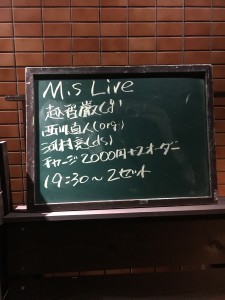 M's Live
越智巌(g)
西川直人(org)
河村亮(ds)
チャージ2000円+2オーダー
19:30～2セット